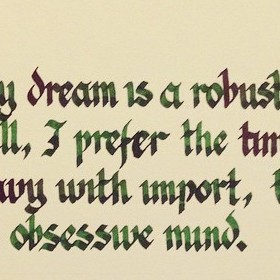 y dream is a robust
ll, I prefer the tim
avy with import,
obsessive mind.